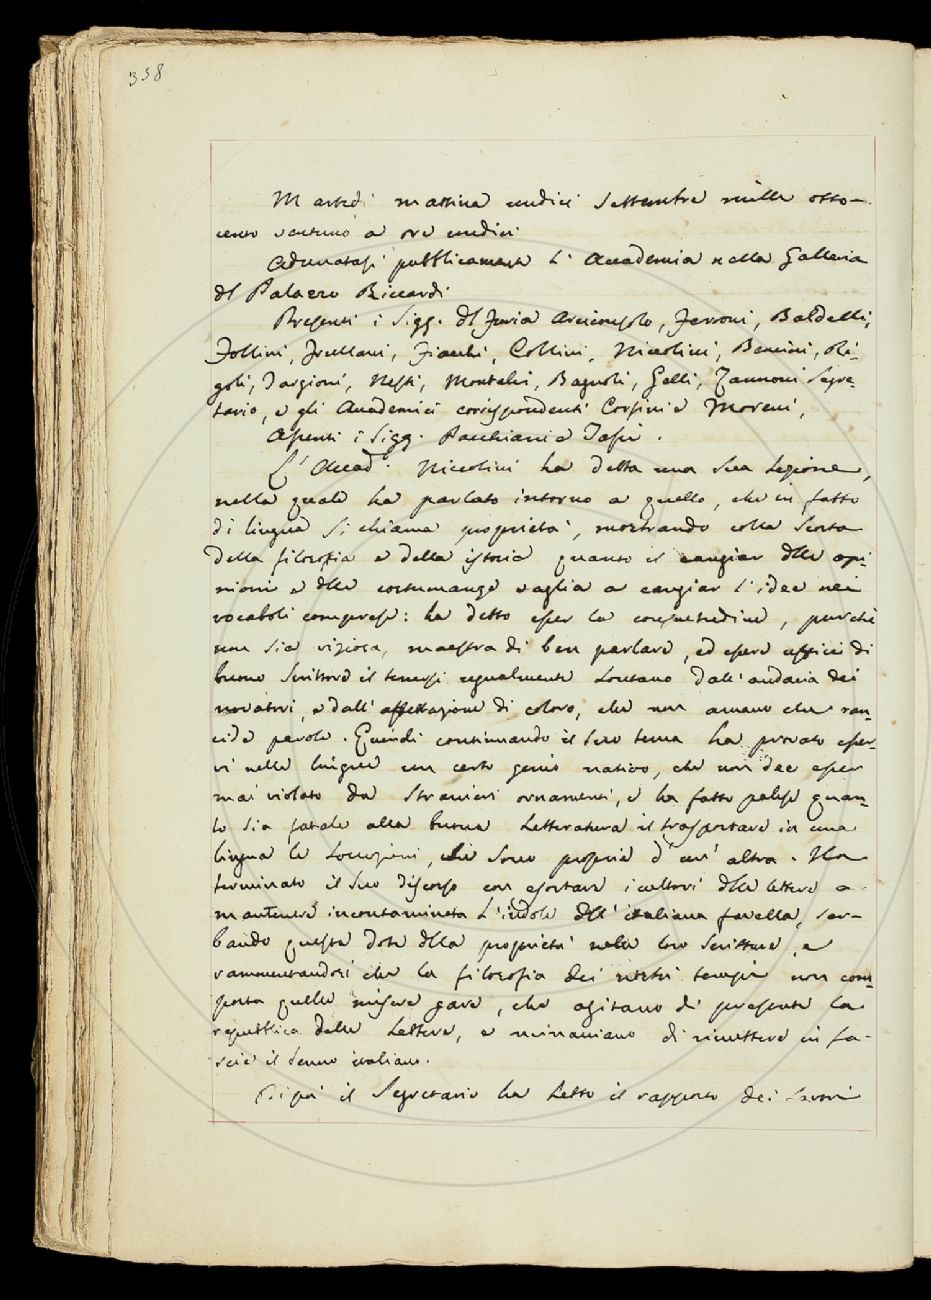 358
Martedì mattina undici Settembre mille otto-
cento ventuno a ore undici
Adunatasi pubblicamente l'Accademia nella Galleria
del Palazzo Riccardi
Presenti i Sigg. Del Furia Arciconsolo, Ferroni, Baldelli,
Follini, Frullani, Fiacchi, Collini, Niccolini, Bencini, Ri-
goli, Targioni, Nesti, Montalvi, Bagnoli, Gelli, Zannoni Segre-
tario, e gli Accademici corrispondenti Corsini e Moreni,
Assenti i Sigg. Pacchiani e Sassi.
L'Accad.º Niccolini ha detta una sua Lezione,
nella quale ha parlato intorno a quello, che in fatto
di lingua si chiama proprietà, mostrando colla scorta
della filosofia e della istoria quanto il cangiar delle opi-
nioni e delle costumanze vaglia a cangiar l'idee nei
vocaboli comprese: ha detto esser la consuetudine, purchè
non sia viziosa, maestra di ben parlare, ed essere ufficio di
buono Scrittore il tenersi egualmente lontano dall'audacia dei
novatori, e dall'affettazione di coloro, che non amano che ran-
cide parole. Quindi continuando il suo tema ha provato esser-
vi nelle lingue un certo genio nativo, che non dee esser
mai violato da stranieri ornamenti, e ha fatto palese quan-
to sia fatale alla buona Letteratura il trasportare in una
lingua le locuzioni, che sono proprie d'un'altra. Ha
terminato il suo discorso con esortare i cultori delle lettere a
mantenere incontaminata l'indole dell'italiana favella, ser-
bando questa dote della proprietà nelle loro scritture, e
rammentandosi che la filosofia dei nostri tempi non com-
porta quelle misere gare, che agitano di presente la
repubblica delle Lettere, e minacciano di rimettere in fa-
scie il senno italiano.
Di poi il Segretario ha letto il rapporto dei lavori